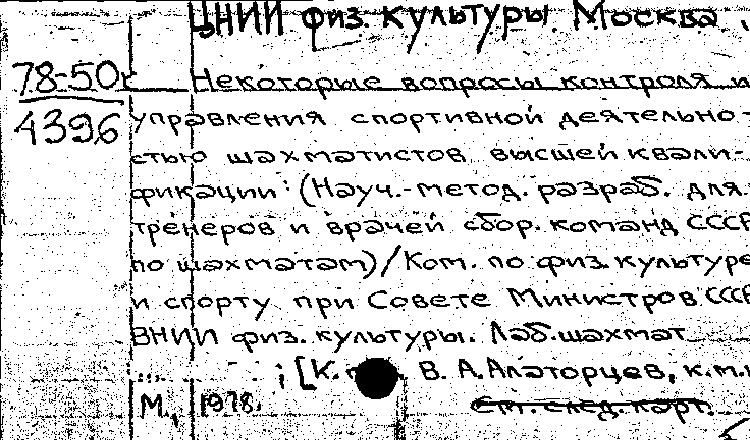 ЦНИИ физ. культуры. Москва.
78-50
4396
Некоторые вопросы контроля и
управления спортивной деятельно-
стью шахматистов высшей квали-
фикации: (Науч.-метод. разраб. для
тренеров и врачей сбор. команд СССР
по шахматам)/Ком. по физ. культуре
и спорту при Совете Министров СССР
ВНИИ физ. культуры. Лаб. шахмат
... ; [К. В. А. Алаторцев, к.м.
М., 1978.
См. след. карт.